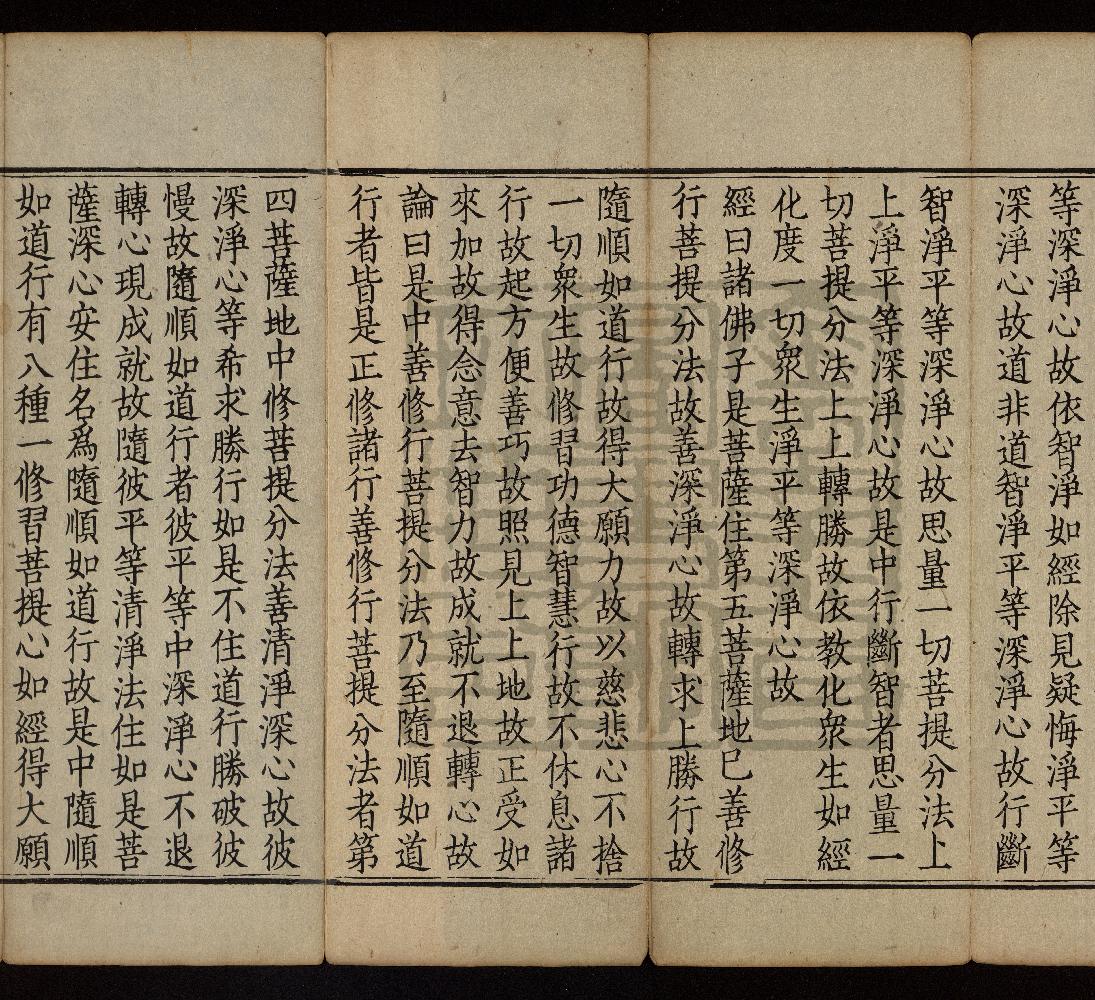 等深淨心故依智淨如經除見疑悔淨平等
深淨心故道非道智淨平等深淨心故行斷
智淨平等深淨心故思量一切菩提分法上
上淨平等深淨心故是中行斷智者思量一
切菩提分法上上轉勝故依教化衆生如經
化度一切衆生淨平等深淨心故
經曰諸佛子是菩薩住第五菩薩地已善修
行菩提分法故善深淨心故轉求上勝行故
隨順如道行故得大願力故以慈悲心不捨
一切衆生故修習功德智慧行故不休息諸
行故起方便善巧故照見上上地故正受如
來加故得念意去智力故成就不退轉心故
論曰是中善修行菩提分法乃至隨順如道
行者皆是正修諸行善修行菩提分法者第
四菩薩地中修菩提分法善清淨深心故彼
深淨心等希求勝行如是不住道行勝破彼
慢故隨順如道行者彼平等中深淨心不退
轉心現成就故隨彼平等清淨法住如是菩
薩深心安住名爲隨順如道行故是中隨順
如道行有八種一修習菩提心如經得大願